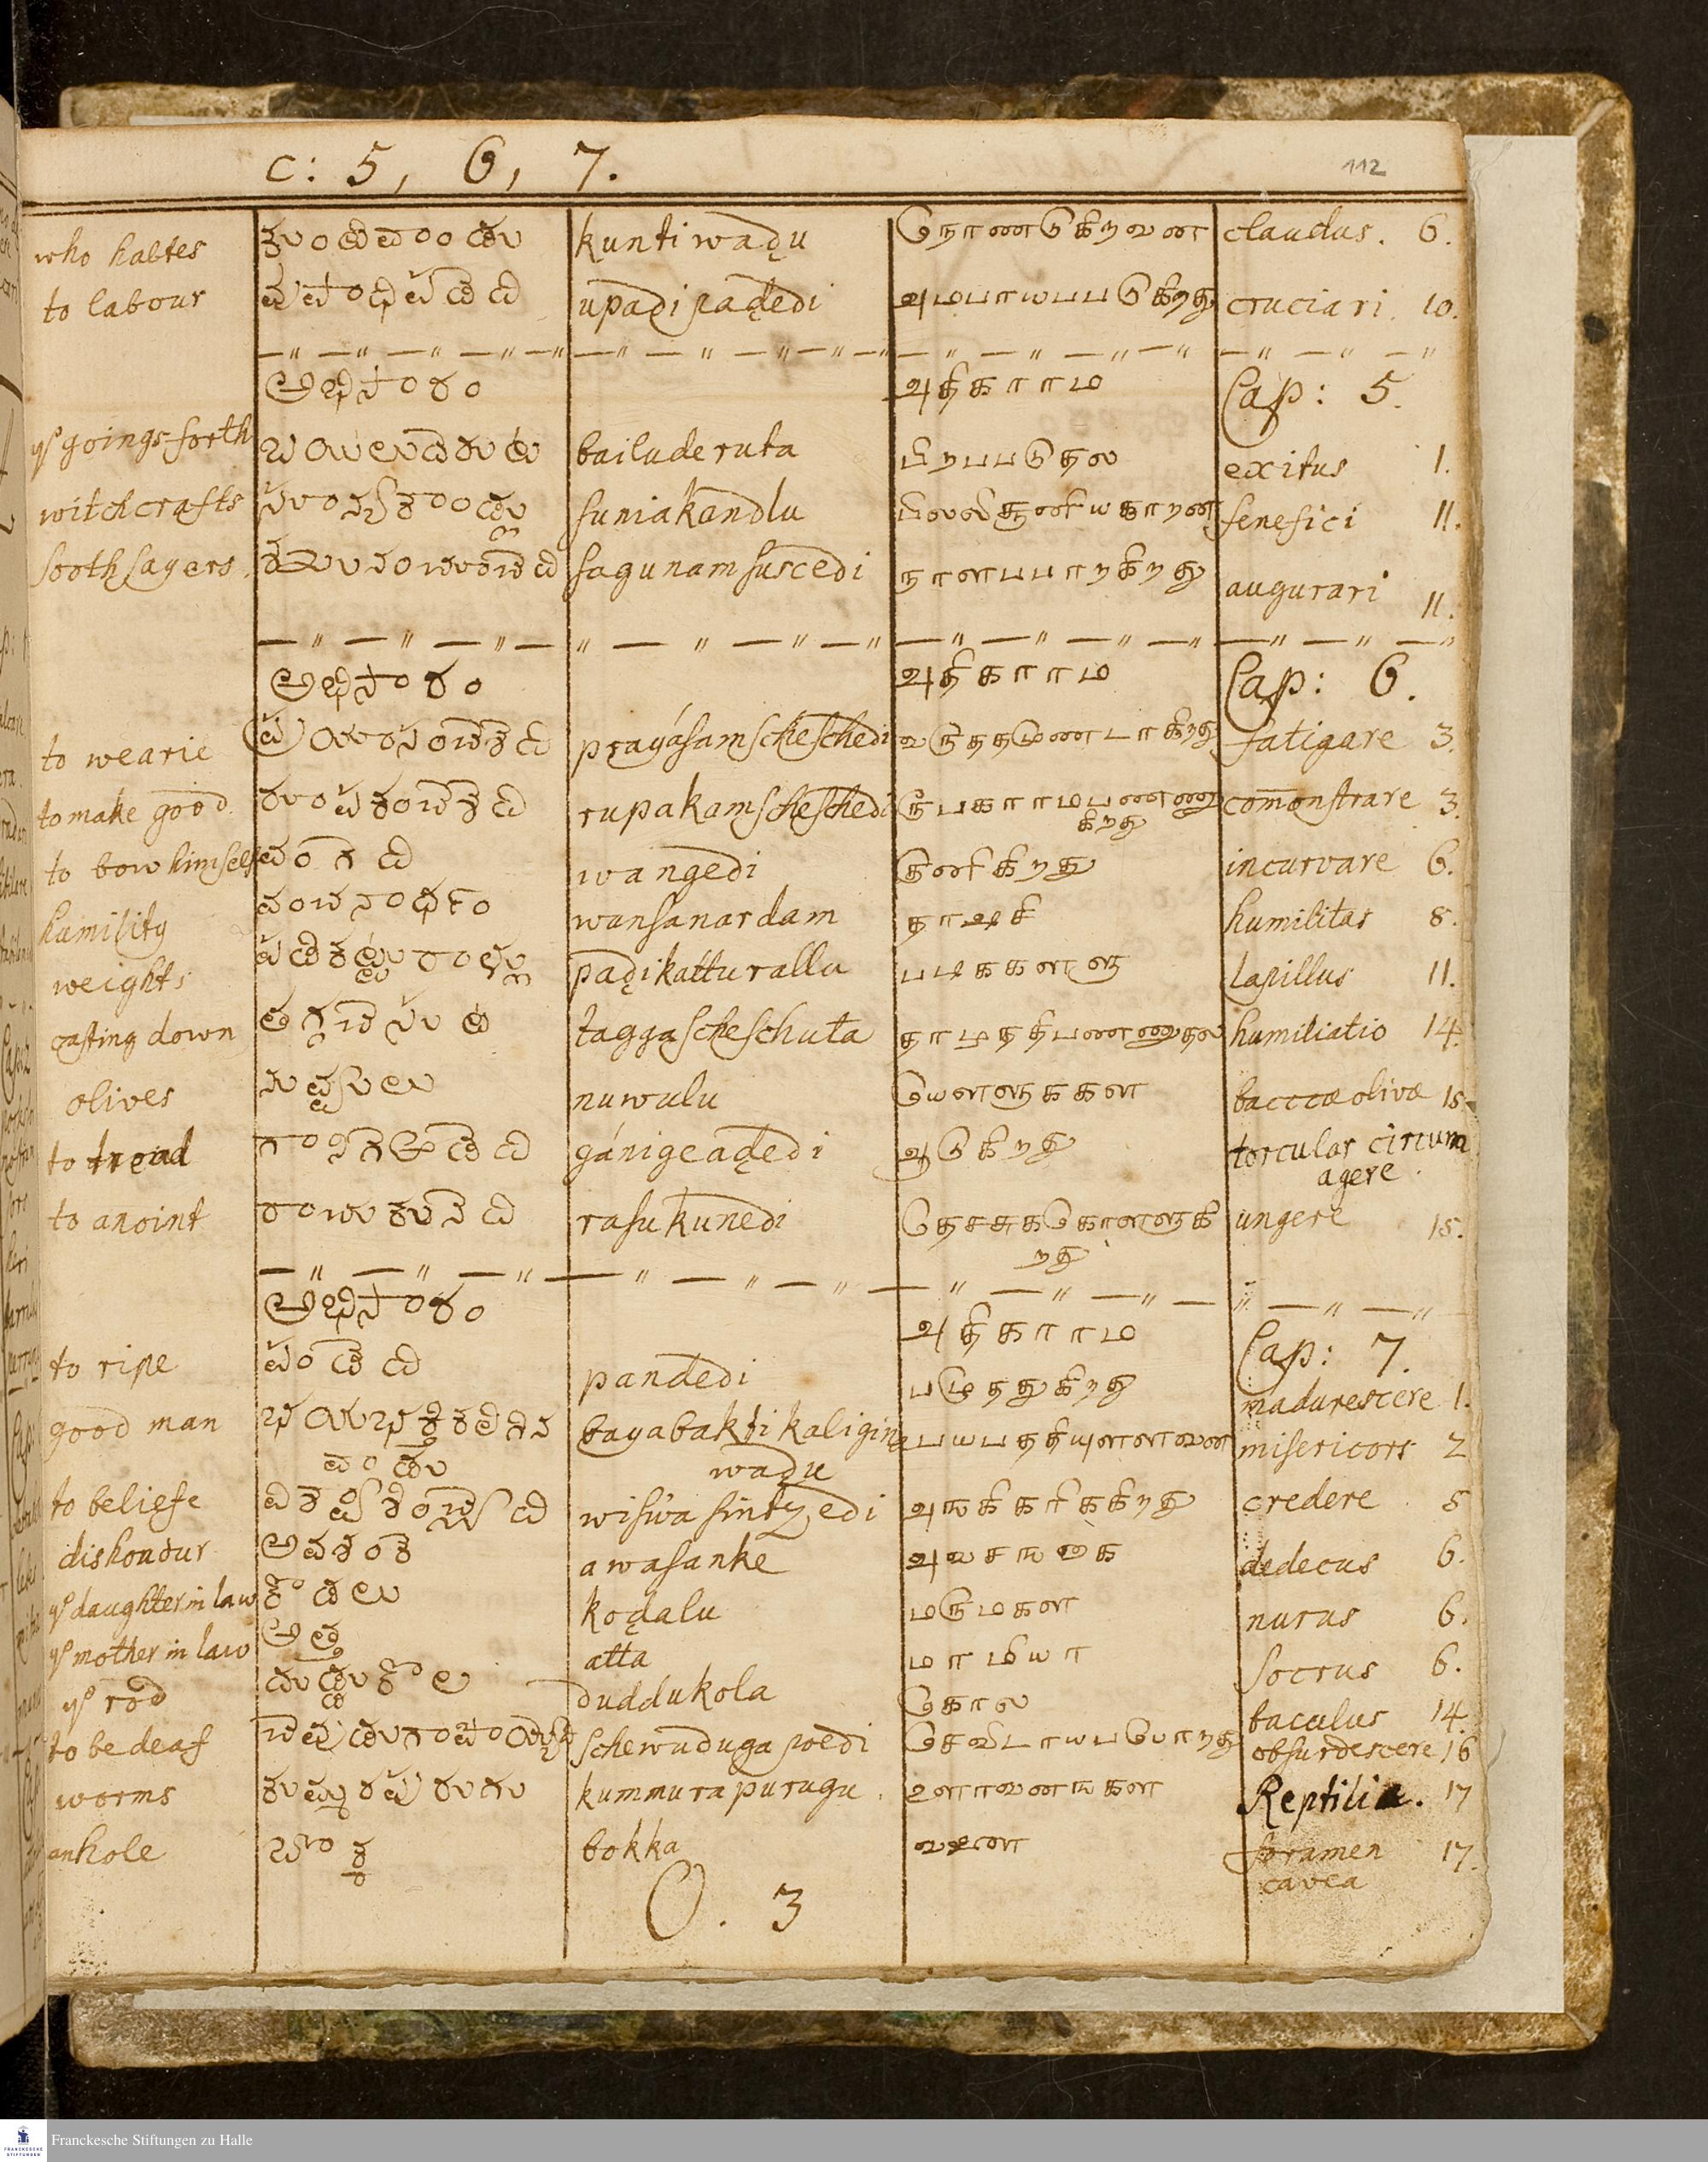 c: 5, 6, 7.
112
who haltes కుంటివాడు kuntiwadu நொண்டுகிறவன claudus. 6.
to labour upadi padedi cruciari. 10.
అధికారం அதிகாரம Cap: 5.
ye goings-forth బయలుదెరుట bailuderuta பிறபபடுதல exitus 1.
witchcrafts suniakandlu fenefici 11.
soothsayers. sagunam suscedi நாளபபாறகிறது augurari 11.
అధికారం அதிகாரம Cap: 6.
to wearie ప్రయాసంచెసెది prayásamscheschedi வருததமுணடாகிறது fatigare 3.
to make good రుపకంచెసెది rupakamscheschedi ரூபகாரமபணணு com̄onstrare 3.
கிறது
to bow himself వంగెది wangedi குனிகிறது incurvare 6.
humility wansanardam தாஷசி humilitas 8.
weights పడికట్టురాళ్లు padikatturallu படிககளளு Lapillus 11.
casting down తగ్గచెసుట taggascheschuta தாழததிபணணுதல humiliatio 14.
olives నువ్వులు nuwulu யெளளுககள bacccæ olivæ 15
to tread గానిగెఆడెది gánigeadedi ஆடுகிறது torcular circum
agere.
to anoint rasukunedi தெசசுககொளளுகி ungere 15.
றது
అధికారం அதிகாரம Cap: 7.
to ripe పండెది pandedi பழுததுகிறது madurescere 1.
good man భయభక్తికలిగిన bayabakti kaligina பயபததியுளளவன misericors 2
వాడు wadu
to beliefe wiswasintzedi அஙகிகரிககிறது credere 5
dishonour అవశంకె awasanke அவசஙகை dedecus 6.
ye daughter in law కోడలు kodalu மருமகள nurus 6.
ye mother in law అత్త atta மாமியா Socrus 6.
ye rod దుడ్డుకోల duddukola கோல baculus 14.
to be deaf schewuduga poedi செவிடாயபபோறது obsurdescere 16
worms kummurapurugu Reptilia. 17
an hole బొక్క bokka வளை foramen 17.
cavea
O. 3
Franckesche Stiftungen zu Halle
FRANCKESCHE
STIFTUNGEN